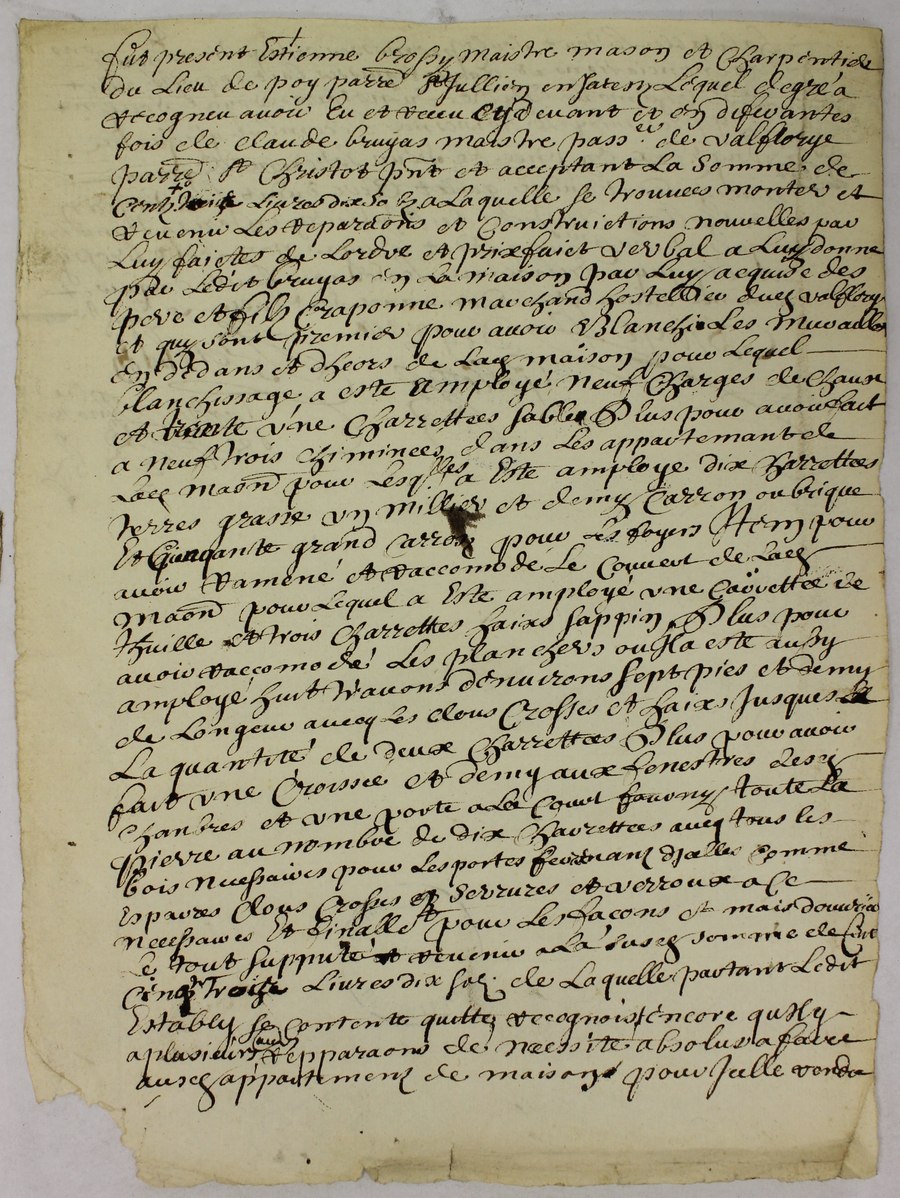 fut present Estienne brossy maistre mason et Charpentie
du Lieu de poy parre St Jullien en Jarest Lequel de gré a
recogneu avoir Eu et receu cy devant et en diferantes
fois de claude bruyas maistre pass.er de valflorye
parre St Christot pnt et acceptant La Somme de
Cent Livres dix so a Laquelle se trouvees monter et
revenir Les reparaons et Construictions nouvelles par
Luy faictes de Lordre et prixfaict verbal a Luy donne
par Ledit bruyas en La maison par Luy acquise des
pere et fils Craponne marchand hostellier dud valflory
et quy sont premier pour avoir Blanchi Les Murailles
en dedans et dheors de Lad maison pour Lequel
blanchissage a este employé neuf Charges de Chaux
et trante une Charrettees sable Plus pour avoir fait
a neuf trois chiminees dans Les appartemant de
Lad maon pour Lesq.lles a Este amployé dix charrettees
terres grasse un millier et demy Carron ou brique
Et Cinquante grand carron pour Les foyers Item pour
avoir ramené et raccomodé Le Couvert de Lad
maon pour Lequel a Este amployé une Carrettee de
thuille et trois Charrettes haixs sappin Plus pour
avoir raccomodé Les planchers ou Il a este aussy
amployé huit travons denvirons sept pies et demy
de Longeur avecq Les clous Crosses et haixs Jusques a
La quantité de deux Charrettees Plus pour avoir
fait une Croisee et demy aux fenestres desd
Chanbres et une porte a La Court fourny toute La
Pierre au nombre de dix Charrettees avecq tous les
bois necessaires pour Les portes fermant djcelles Comme
Esparres Clous Crosses et Serrures et verroux a Ce
necessaires Et finallet pour Les facons et mais douvrie
Le tout supputé et revenir a La susd somme de Cent
Livres dix sol de Laquelle partant Ledit
Estably se contente quitte recognoist encore qu Il y
a plusieurs repparaons de necessite absolus a faire
ausd appartement de maison pour Jcelle rendre